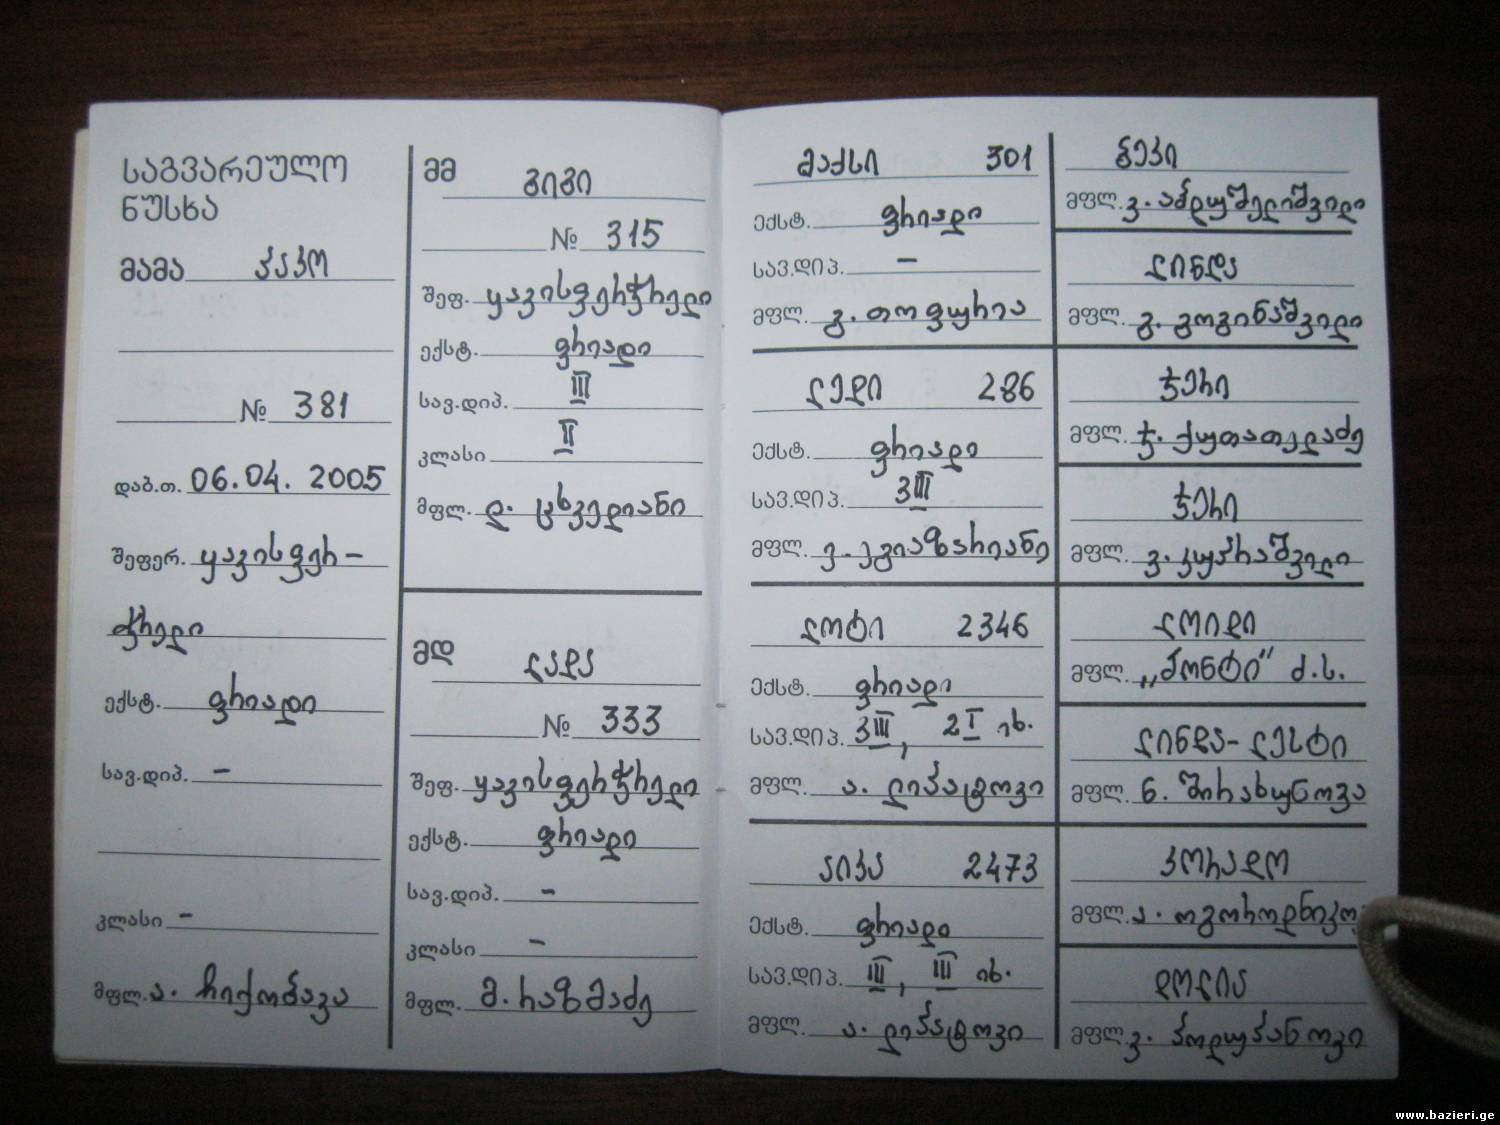 საგვარეულო
ნუსხა
მამა კაკო
№ 381
დაბ.თ. 06.04. 2005
შეფერ. ყავისფერ –
ჭრელი
ექსტ. ფრიადი
სავ.დიპ. –
კლასი –
მფლ. ა. ჩიქობავა
მმ გიგი
№ 315
შეფ. ყავისფერჭრელი
ექსტ. ფრიადი
სავ.დიპ. III
კლასი II
მფლ. დ. ცხვედიანი
მდ ლადა
№ 333
შეფ. ყავისფერჭრელი
ექსტ. ფრიადი
სავ.დიპ. –
კლასი –
მფლ. მ. რაზმაძე
მაქსი 301
ექსტ. ფრიადი
სავ.დიპ. –
მფლ. გ. თოფურია
ლედი 286
ექსტ. ფრიადი
სავ.დიპ. 3III
მფლ. ე. ეგიაზარიანი
ლოტი 2346
ექსტ. ფრიადი
სავ.დიპ. 3III, 2I იხ.
მფლ. ა. ლიპატოვი
აიკა 2473
ექსტ. ფრიადი
სავ.დიპ. III, III იხ.
მფლ. ა. ლიპატოვი
ჯეკი
მფლ. ვ. აბდუშელიშვილი
ლინდა
მფლ. გ. გოგინაშვილი
ჯერი
მფლ. ჯ. ქუთათელაძე
ჯერი
მფლ. ვ. კუპრაშვილი
ლოიდი
მფლ. „პონტი“ ძ.ს.
ლინდა-ლესტი
მფლ. ნ. შირახუნოვა
კორადო
მფლ. ა. ოგოროდნიკო
დოლია
მფლ. ვ. პოლუპანოვი
www.bazieri.ge